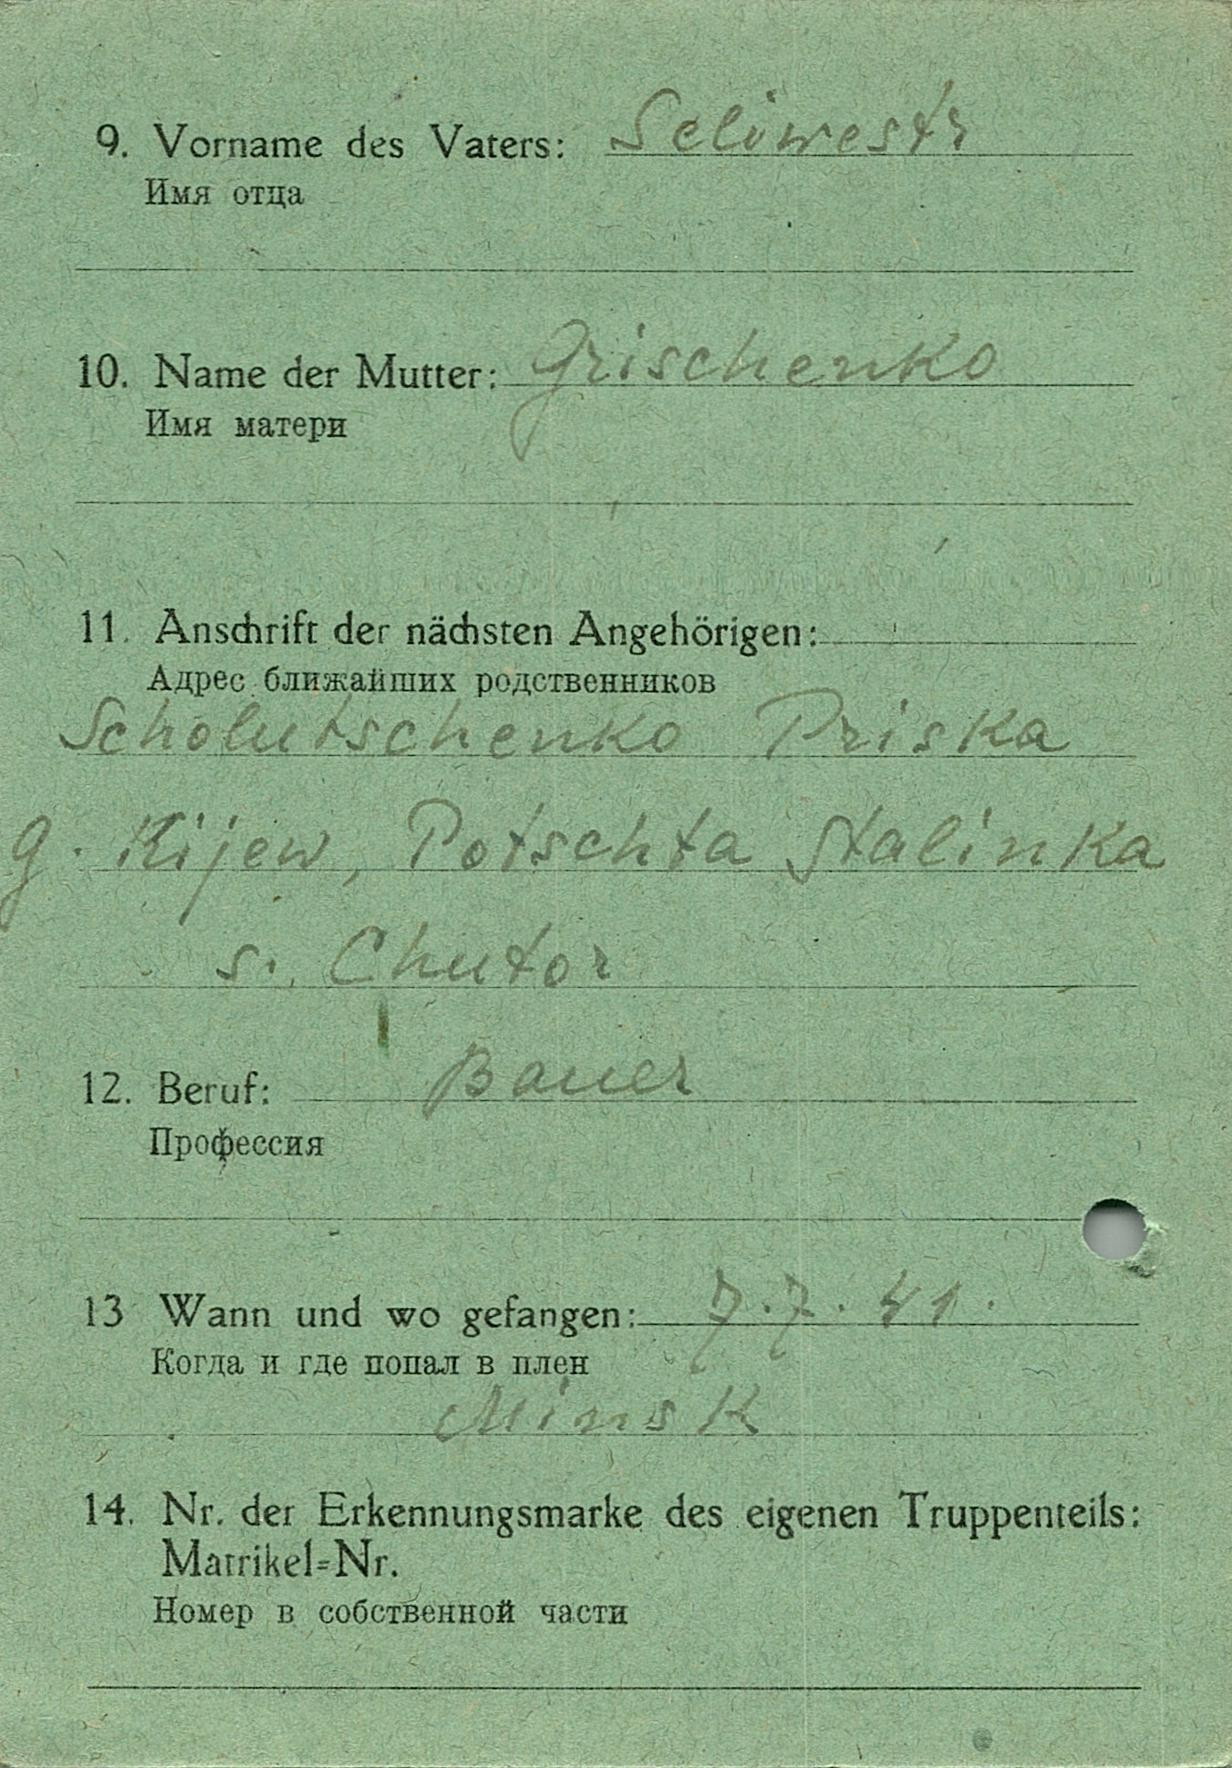 9. Vorname des Vaters: Seliwestr
Имя отца
10. Name der Mutter: Grischenko
Имя матери
11. Anschrift der nächsten Angehörigen:
Адрес ближайших родственников
Scholutschenko Priska
g. Kijew, Potschta Stalinka
s. Chutor
12. Beruf: Bauer
Профессия
13 Wann und wo gefangen: 7.7.41.
Когда и где попал в плен
Minsk
14. Nr. der Erkennungsmarke des eigenen Truppenteils:
Matrikel=Nr.
Номер в собственной части